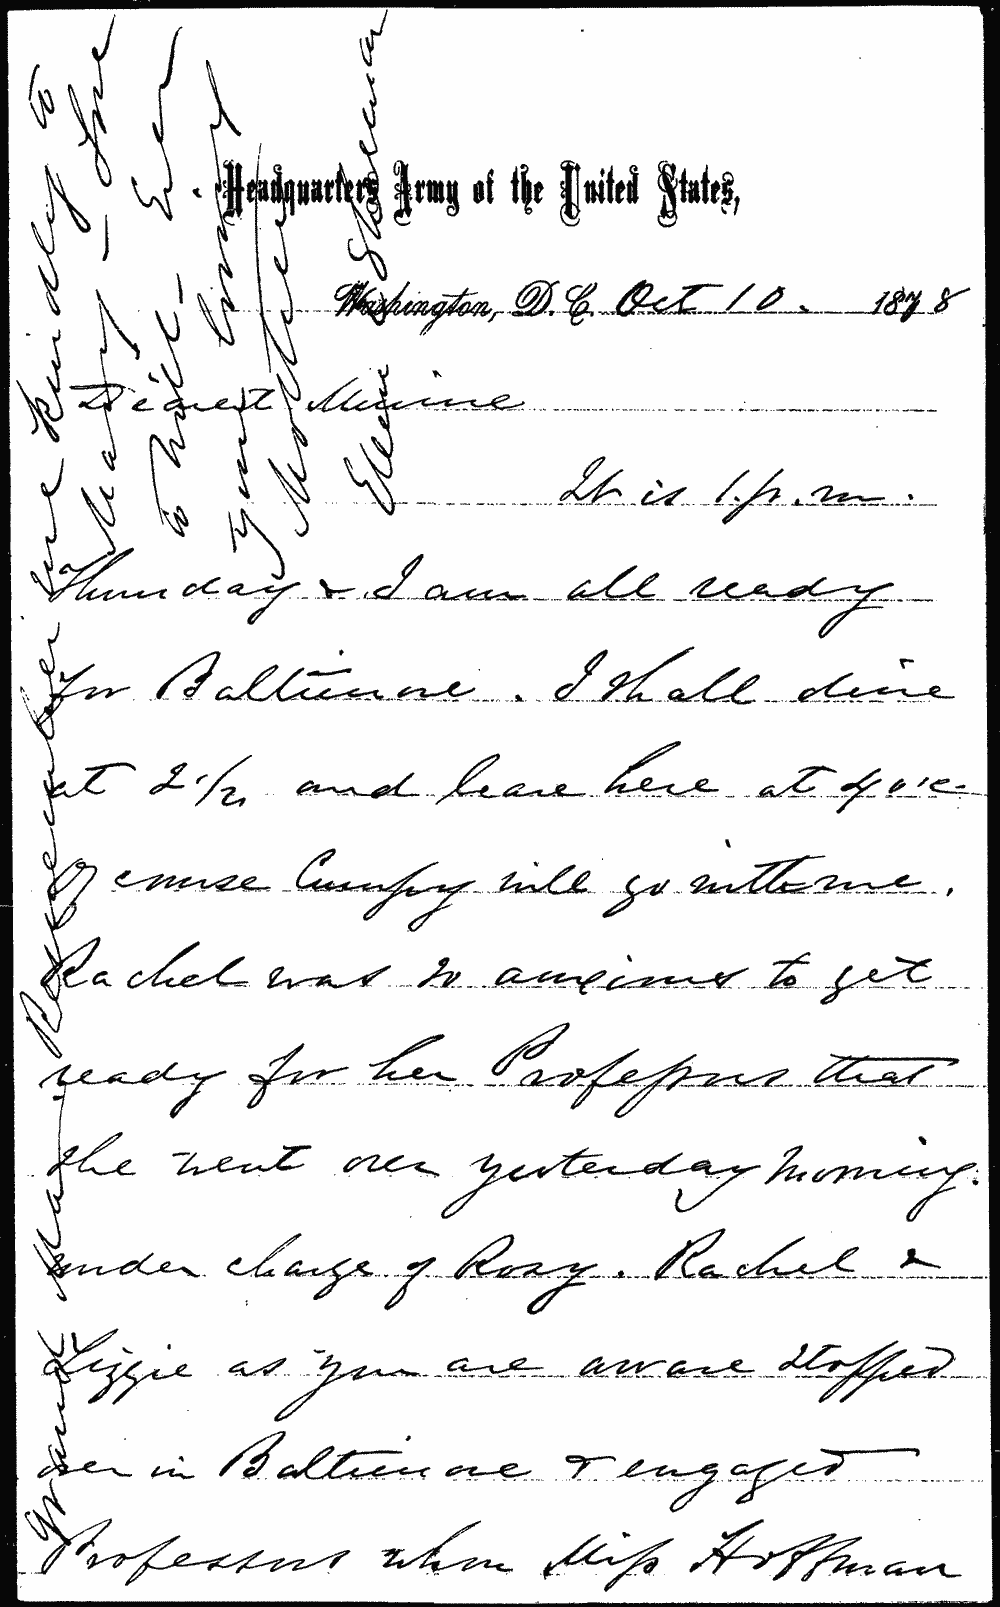 Headquarters Army of the United States,
Washington, D.C. Oct 10. 1878
Dearest Minnie
It is 1.p.m.
Thursday & I am all ready
for Baltimore. I shall dine
at 2 1/2 and leave here at 4 o'c-
Of course Cumpy will go with me.
Rachel was so anxious to get
ready for her Professors that
she went over yesterday morning.
under charge of Rosy. Rachel &
Lizzie as you are aware stopped
over in Baltimore & engaged
Professors whom Miss Hoffman
Grand Ma. Remember me kindly to
Mary - Love
to Will - Ever
your loving
Mother
Ellen Sherman